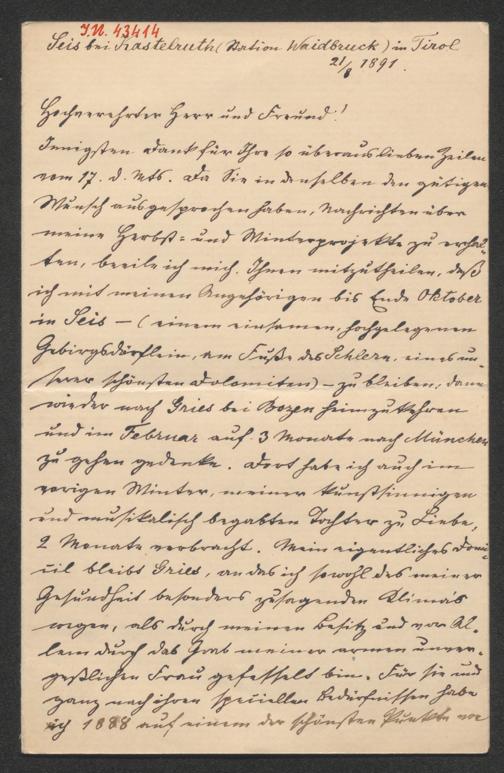 I.N. 43414
Seis bei Kastelruth (Station Waidbruck) in Tirol
21/8 1891.
Hochverehrter Herr und Freund!
Innigsten Dank für Ihre so überaus lieben Zeilen
vom 17. d. Mts. Da Sie in denselben den gütigen
Wunsch ausgesprochen haben, Nachrichten über
meine Herbst- und Winterprojekte zu erhal-
ten, beeile ich mich, Ihnen mitzutheilen, daß
ich mit meinen Angehörigen bis Ende Oktober
in Seis – (einem einsamen, hochgelegenen
Gebirgsdörflein, am Fuße des Schlern, eines un-
serer schönsten Dolomiten) – zu bleiben, dann
wieder nach Gries bei Bozen heimzukehren
und im Februar auf 3 Monate nach München
zu gehen gedenke. Dort habe ich auch im
vorigen Winter, meiner kunstsinnigen
und musikalisch begabten Tochter zu Liebe,
2 Monate verbracht. Mein eigentliches Domi-
cil bleibt Gries, an das ich sowohl des meiner
Gesundheit besonders zusagenden Klimas
wegen, als durch meinen Besitz und vor Al-
lem durch das Grab meiner armen unver-
geßlichen Frau gefesselt bin. Für sie und
ganz nach ihren speciellen Bedürfnissen habe
ich 1888 auf einem der schönsten Punkte